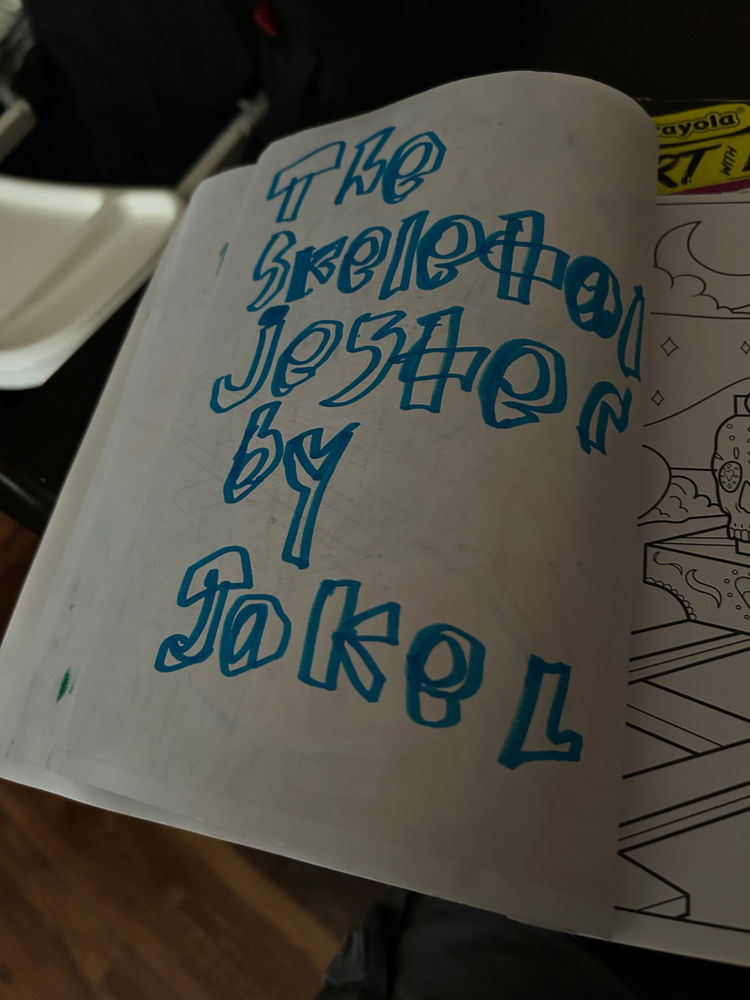 The
Skeletal
jester
by
Jake L
rayola®
RT WITH